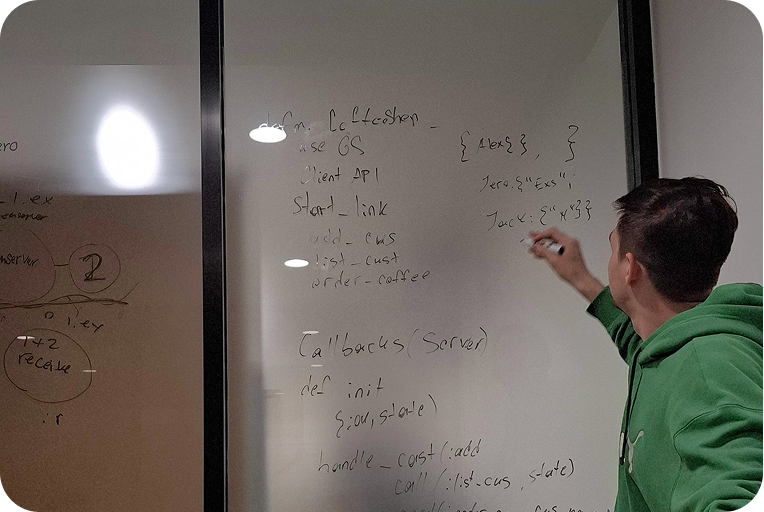 ero
1.ex
server
2
1.ex
1+2
receive
:r
defm. Coffeeshop
use GS
Client API
Start_link
add_cus
list_cust
order_coffee
Callbacks (Server)
def init
{:ok, state}
handle_cast(:add
call(:list_cus, state)
{Alex{}, }
Jero:{"Exs";
Jack:{"M"}}